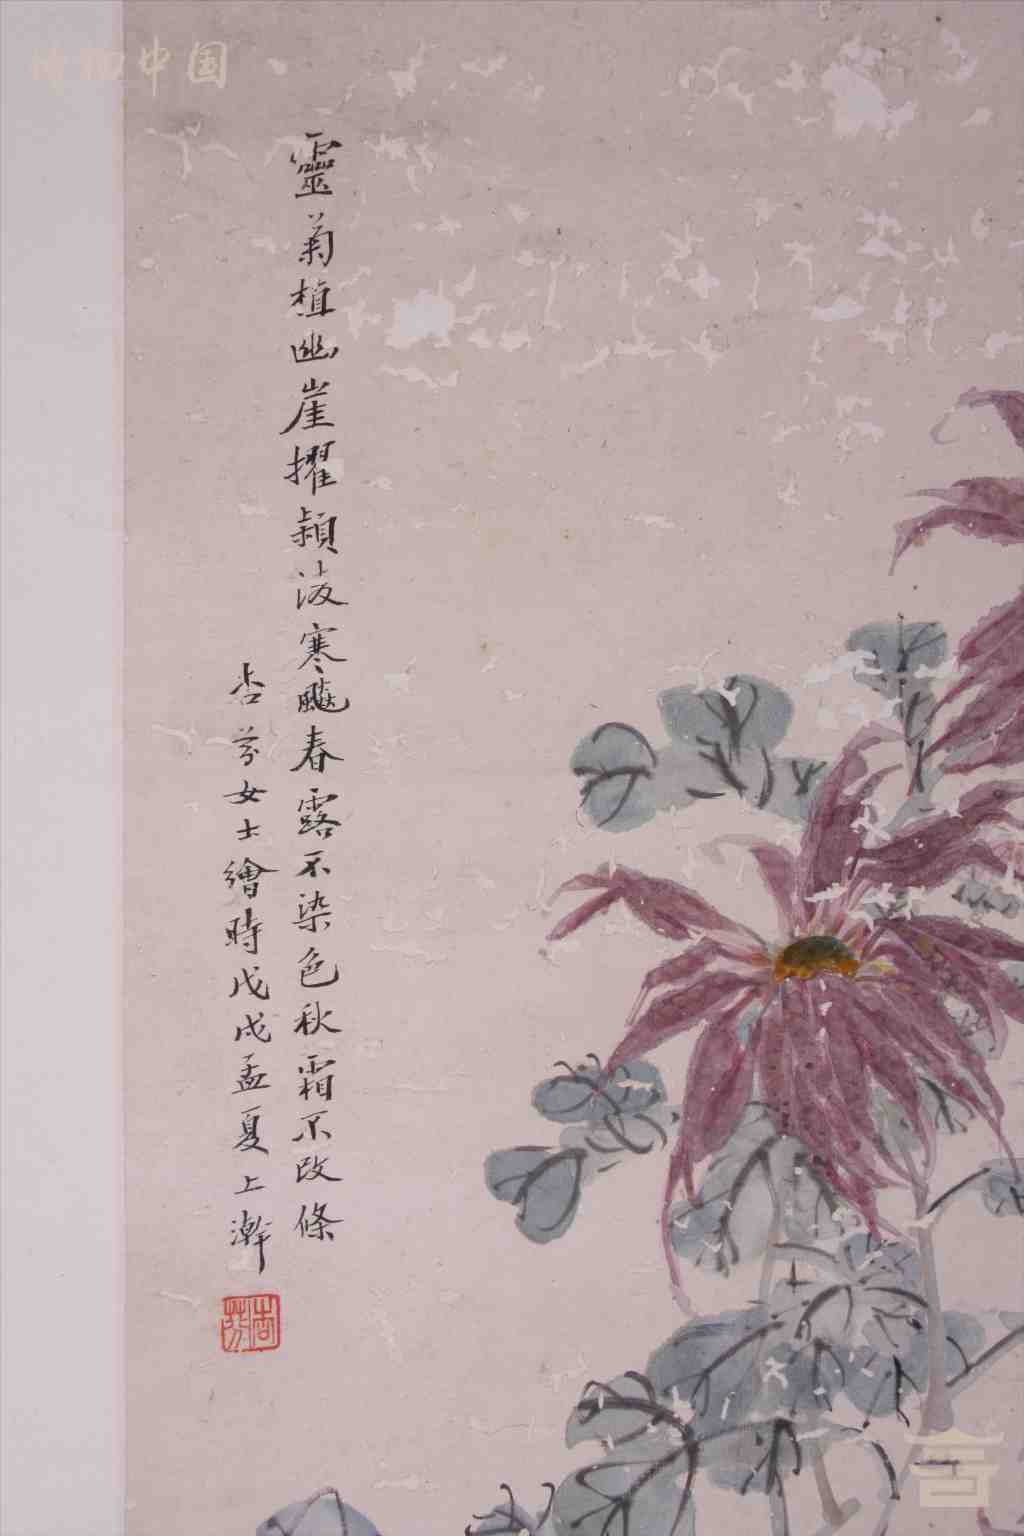 博物中国
靈菊植幽崖擢穎淩寒飈春露不染色秋霜不改條
杏芬女士繪時戊戌孟夏上澣